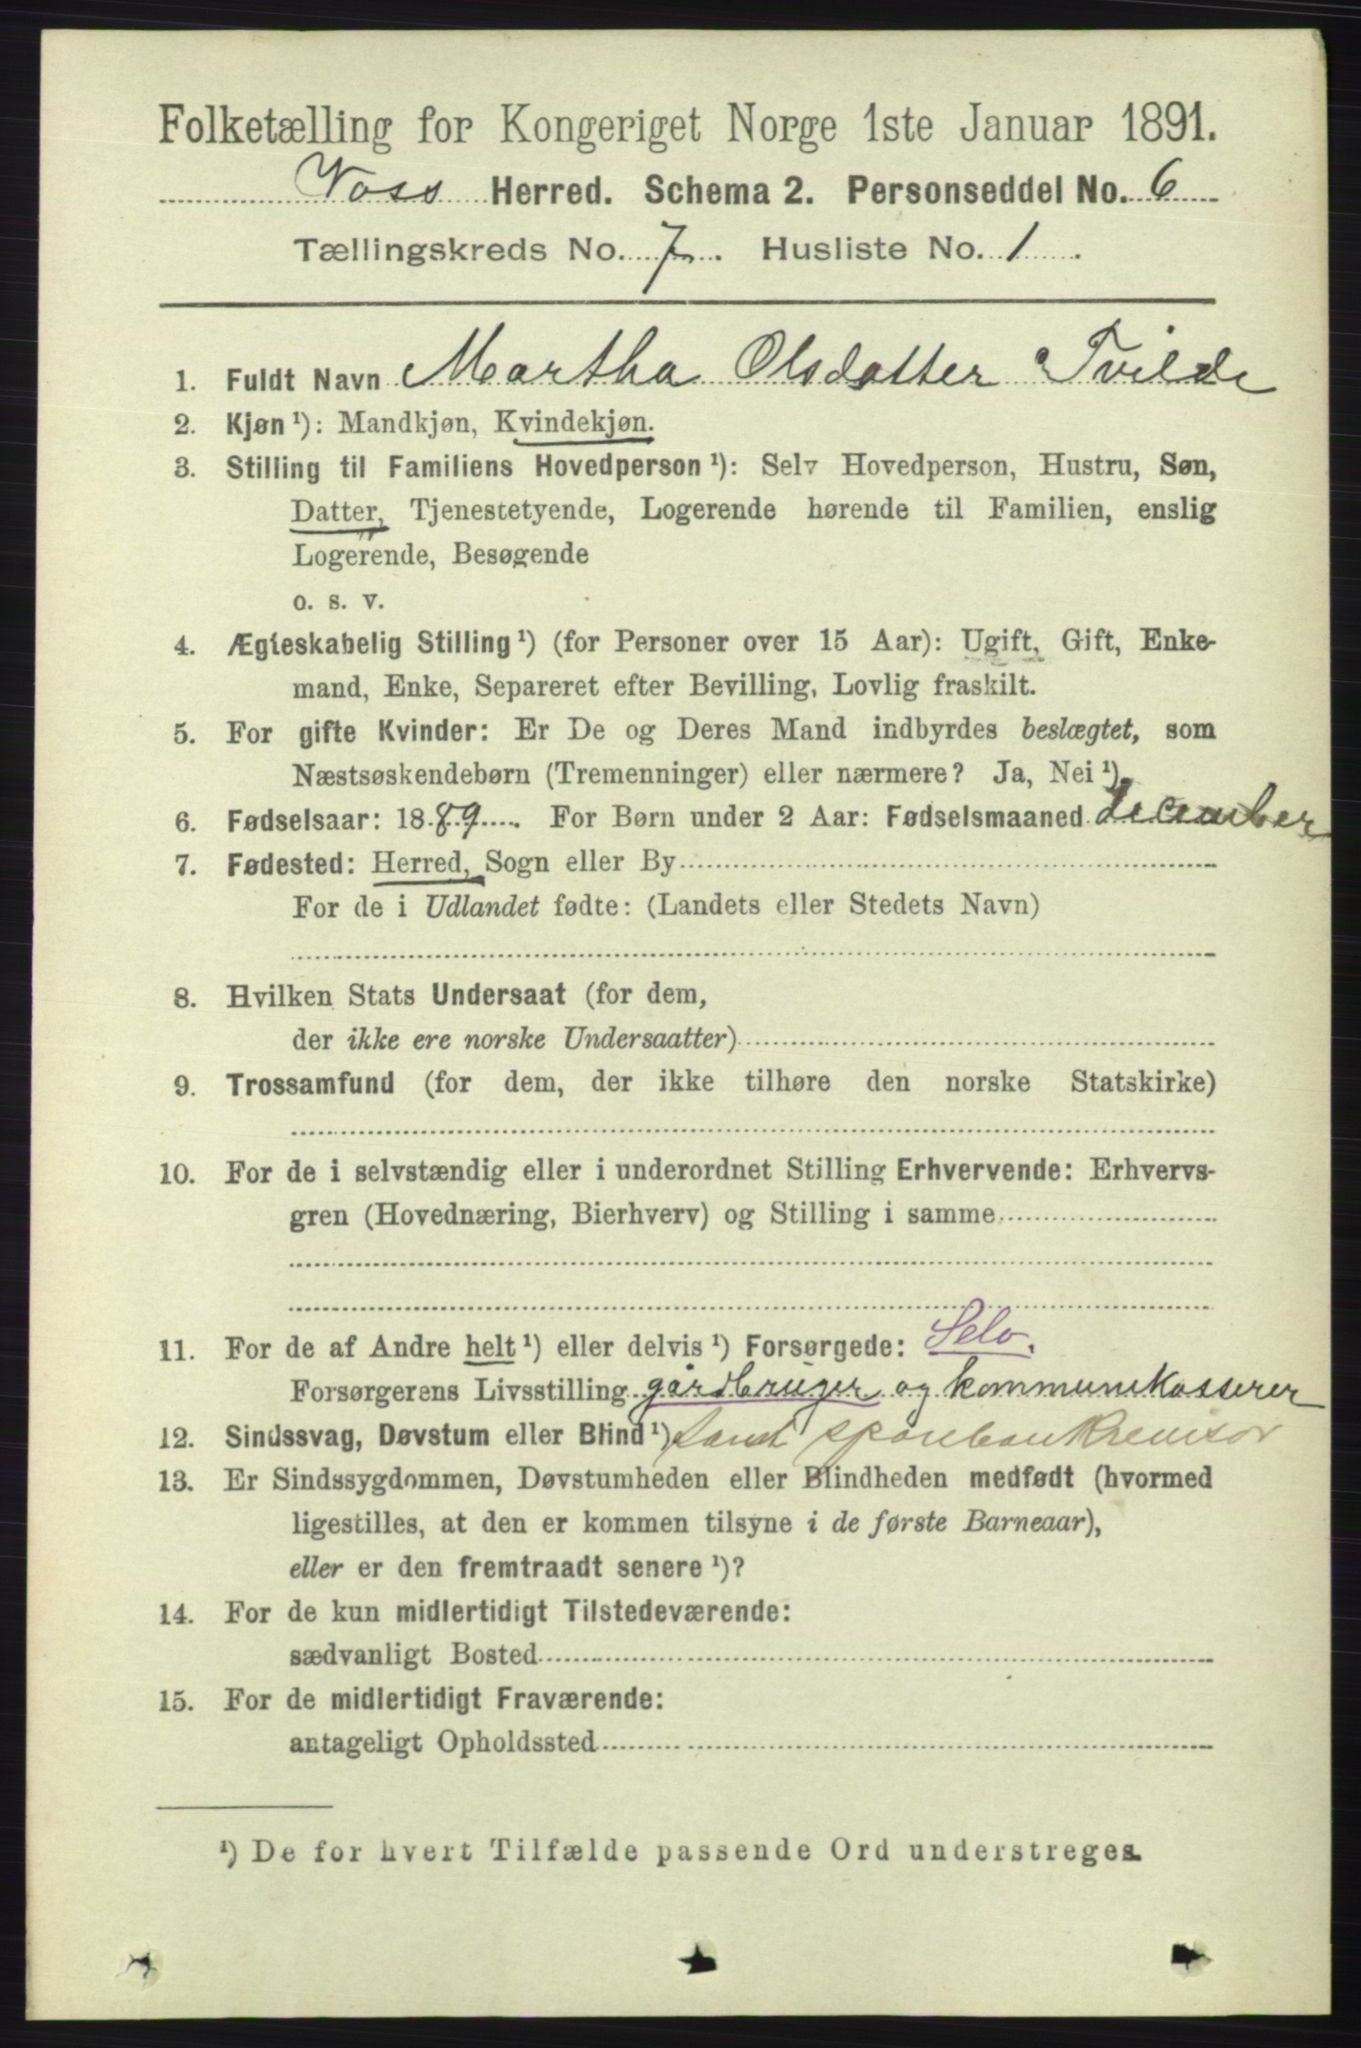 Folketælling for Kongeriget Norge 1ste Januar 1891.
Voss Herred. Schema 2. Personseddel No. 6
Tællingskreds No. 7. Husliste No. 1
1. Fuldt Navn Martha Olsdatter Tvilde
2. Kjøn ¹): Mandkjøn, Kvindekjøn.
3. Stilling til Familiens Hovedperson ¹): Selv Hovedperson, Hustru, Søn,
Datter, Tjenestetyende, Logerende hørende til Familien, enslig
Logerende, Besøgende
o. s. v.
4. Ægteskabelig Stilling ¹) (for Personer over 15 Aar): Ugift, Gift, Enke-
mand, Enke, Separeret efter Bevilling, Lovlig fraskilt.
5. For gifte Kvinder: Er De og Deres Mand indbyrdes beslægtet, som
Næstsøskendebørn (Tremenninger) eller nærmere? Ja, Nei ¹).
6. Fødselsaar: 1889. For Børn under 2 Aar: Fødselsmaaned december
7. Fødested: Herred, Sogn eller By
For de i Udlandet fødte: (Landets eller Stedets Navn)
8. Hvilken Stats Undersaat (for dem,
der ikke ere norske Undersaatter)
9. Trossamfund (for dem, der ikke tilhøre den norske Statskirke)
10. For de i selvstændig eller i underordnet Stilling Erhvervende: Erhvervs-
gren (Hovednæring, Bierhverv) og Stilling i samme
11. For de af Andre helt ¹) eller delvis ¹) Forsørgede: Selv.
Forsørgerens Livsstilling gårdbruger og kommunekasserer
12. Sindssvag, Døvstum eller Blind ¹) samt sparebankrevisor
13. Er Sindssygdommen, Døvstumheden eller Blindheden medfødt (hvormed
ligestilles, at den er kommen tilsyne i de første Barneaar),
eller er den fremtraadt senere ¹)?
14. For de kun midlertidigt Tilstedeværende:
sædvanligt Bosted
15. For de midlertidigt Fraværende:
antageligt Opholdssted
¹) De for hvert Tilfælde passende Ord understreges.